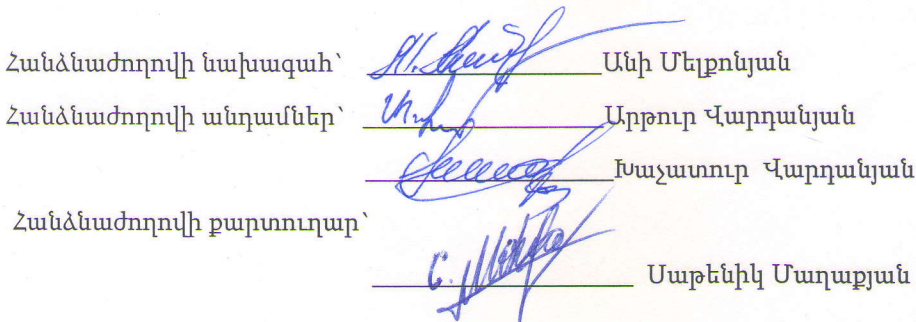 Հանձնաժողովի նախագահ՝ Անի Մելքոնյան
Հանձնաժողովի անդամներ՝ Արթուր Վարդանյան
Խաչատուր Վարդանյան
Հանձնաժողովի քարտուղար՝
Սաթենիկ Մաղաքյան